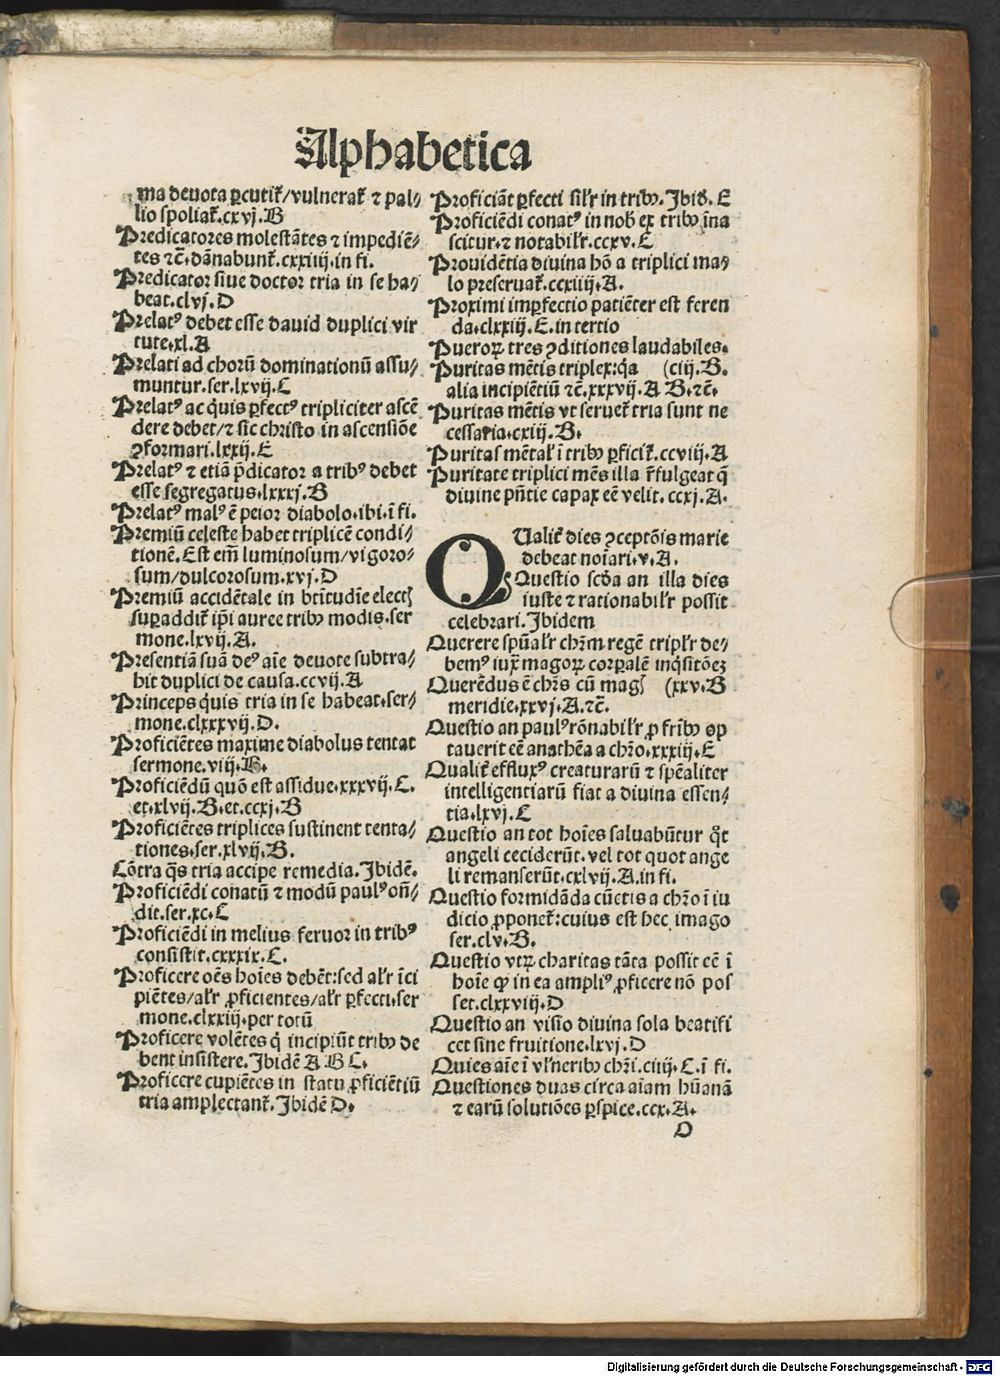 Alphabetica
ma deuota ꝑcutit̃/vulnerat̃ ⁊ pal⸗
lio spoliat̃.cxvj.B
Predicatores molestãtes ⁊ impediẽ⸗
tes ⁊c̃.dãnabunt̃.cxxiiij.in fi.
Predicator siue doctor tria in se ha⸗
beat.clvj.D
Prelatꝰ debet esse dauid duplici vir
tute.xl.A
Prelati ad chorũ dominationũ assu⸗
muntur.ser.lxvij.C
Prelatꝰ ac quis ꝑfectꝰ tripliciter ascẽ
dere debet/⁊ sic christo in ascensiõe
ꝯformari.lxxij.E
Prelatꝰ ⁊ etiã p̃dicator a tribꝰ debet
esse segregatus.lxxxj.B
Prelatꝰ malꝰ ẽ peior diabolo.ibi.ĩ fi.
Premiũ celeste habet triplicẽ condi⸗
tionẽ. Est em̃ luminosum/vigoro⸗
sum/dulcorosum.xvj.D
Premiũ accidẽtale in btĩtudĩe electꝭ
suꝑaddit̃ ip̃i auree tribꝰ modis.ser
mone.lxvij.A.
Presentiã suã deꝰ aĩe deuote subtra⸗
hit duplici de causa.ccvij.A
Princeps quis tria in se habeat.ser⸗
mone.clxxxvij.D.
Proficiẽtes maxime diabolus tentat
sermone.viij.B.
Proficiẽdũ quõ est assidue.xxxvij.C.
et.xlvij.B.et.ccxj.B
Proficiẽtes triplices sustinent tenta⸗
tiones.ser.xlvij.B.
Cõtra q̃s tria accipe remedia. Ibidẽ.
Proficiẽdi conatũ ⁊ modũ paulꝰ oñ⸗
dit.ser.xc.C
Proficiẽdi in melius feruor in tribꝰ
consistit.cxxxix.C.
Proficere oẽs hoĩes debẽt:sed al̃r ĩci
piẽtes/al̃r ꝓficientes/al̃r ꝑfecti.ser
mone.clxxiij.per totũ
Proficere volẽtes q̃ incipiũt tribꝰ de
bent insistere. Ibidẽ A B C.
Proficere cupiẽtes in statu ꝓficiẽtiũ
tria amplectant̃. Ibidẽ D.
Proficiãt ꝑfecti sil̃r in tribꝰ. Ibid̃. E
Proficiẽdi conatꝰ in nob̃ ex tribꝰ ĩna
scitur.⁊ notabil̃r.ccxv.C
Prouidẽtia diuina hõ a triplici ma⸗
lo preseruat̃.ccxiiij.A.
Proximi imꝑfectio patiẽter est feren
da.clxxiij.E.in tertio
Pueroꝝ tres ꝯditiones laudabiles.
Puritas mẽtis triplex:q̃a (ciij.B.
alia incipiẽtiũ ⁊c̃.xxxvij.A B.⁊c̃.
Puritas mẽtis vt seruet̃ tria sunt ne
cessaria.cxiij.B.
Puritas mẽtal̃ ĩ tribꝰ ꝑficit̃.ccviij.A
Puritate triplici mẽs illa r̃fulgeat q̃
diuine pñtie capax eẽ velit.ccxj.A.
QUalit̃ dies ꝯceptõis marie
debeat noĩari.v.A.
Questio scd̃a an illa dies
iuste ⁊ rationabil̃r possit
celebrari. Ibidem
Querere spũal̃r chr̃m regẽ tripl̃r de⸗
bemꝰ iux̃ magoꝝ corꝑalẽ inq̃sitõeʒ
Querẽdus ẽ chr̃s cũ magꝭ (xxv.B
meridie.xxvj.A.⁊c̃.
Questio an paulꝰ rõnabil̃r ꝓ fr̃ibꝰ op
tauerit eẽ anathẽa a chr̃o.xxxiij.E
Qualit̃ effluxꝰ creaturarũ ⁊ spẽaliter
intelligentiarũ fiat a diuina essen⸗
tia.lxvj.C
Questio an tot hoĩes saluabũtur q̃t
angeli ceciderũt.vel tot quot ange
li remanserũt.cxlvij.A.in fi.
Questio formidãda cũctis a chr̃o ĩ iu
dicio ꝓponet̃:cuius est hec imago
ser.clv.B.
Questio vtꝝ charitas tãta possit eẽ ĩ
hoĩe ꝙ in ea ampliꝰ ꝓficere nõ pos
set.clxxviij.D
Questio an visio diuina sola beatifi
cet sine fruitione.lxvj.D
Quies aĩe ĩ vl̃neribꝰ chr̃i.ciiij.C.ĩ fi.
Questiones duas circa aĩam hũanã
⁊ earũ solutiões ꝑspice.ccx.A.
O
Digitalisierung gefördert durch die Deutsche Forschungsgemeinschaft - DFG